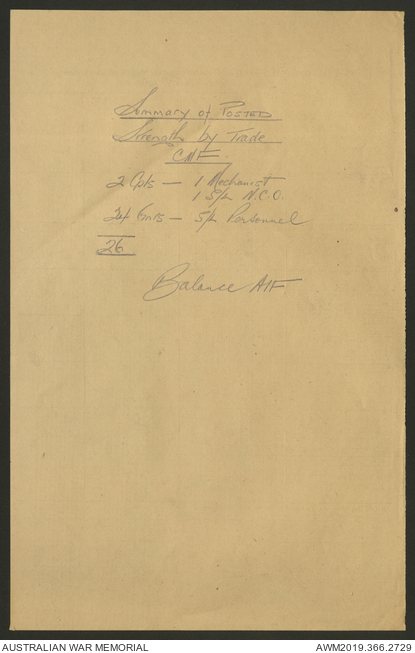 Summary of POSTED
Strength by Trade
CMF.
2 Cpls — 1 Mechanist
1 S/L N.C.O.
24 Gnrs — S/L Personnel
26
Balance AIF
AUSTRALIAN WAR MEMORIAL
AWM2019.366.2729